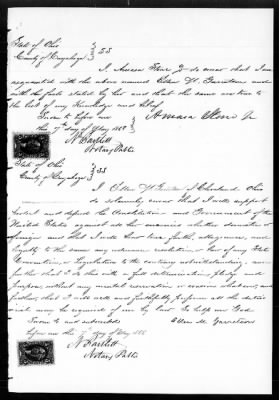 State of Ohio
County of Cuyahoga } SS
I, Amasa Stone Jr do swear that I am
acquainted with the above named Ellen M. Garretson and
with the facts stated by her and that the same are true to
the best of my Knowledge and belief.
Amasa Stone Jr
Sworn to before me
this 7th day of May
N Bartlett
Notary Public
State of Ohio
County of Cuyahoga } SS
I Ellen M of Cleveland Ohio
do solemnly swear that I will support
protect and defend the Constitution and Government of the
United States against all enemies whether domestic or
foreign and that I will bear true faith, allegiance, and
loyalty to the same any ordinance resolution or law of any State
Convention, or Legislature to the contrary notwithstanding, and
further that I do this with a full determination, pledge and
purpose, without any mental reservation or evasion whatsoever, and
further, that I will well and faithfully perform all the duties
which may be required of me by law So help me God
Ellen M. Garretson
Sworn to and subscribed
before me this day of May
N Bartlett
Notary Public